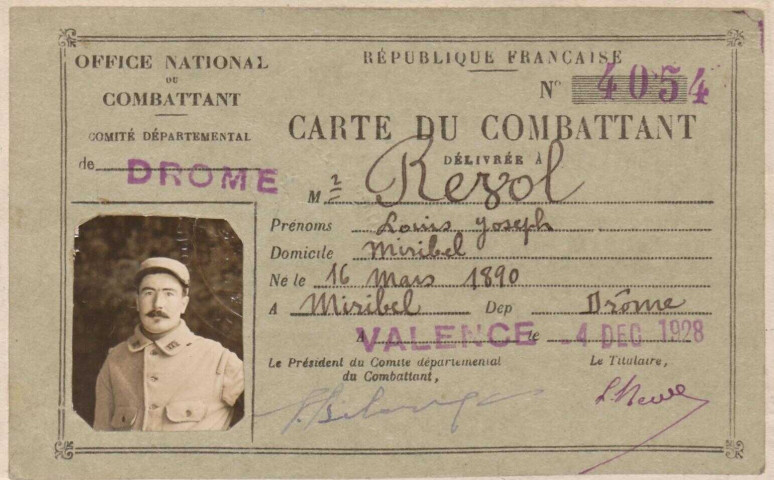 OFFICE NATIONAL
DU
COMBATTANT
COMITÉ DÉPARTEMENTAL
de DROME
RÉPUBLIQUE FRANÇAISE
N° 4054
CARTE DU COMBATTANT
DÉLIVRÉE À
Mr Rezol
Prénoms Louis Joseph
Domicile Miribel
Né le 16 Mars 1890
A Miribel Dep Drôme
A VALENCE le -4 DEC 1928
Le Président du Comité départemental
du Combattant,
Le Titulaire,